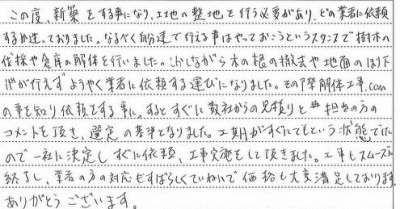 この度、新築をする事になり、土地の整地を行う必要があり、どの業者に依頼
するか迷っておりました。なるべく自分達で行える事はやっておこうというスタンスで樹木の
伐採や倉庫の解体を行いました。しかしながら木の根の撤去や地面のはり下
げが行えずようやく業者に依頼する運びになりました。その際解体工事.com
の事を知り依頼をする事に。するとすぐに数社からの見積りと担当の方の
コメントを頂き、選定の基準となりました。工期がすぐにでもという状態でした
ので一社に決定しすぐに依頼、工事実施をして頂きました。工事もスムーズに
終了し、業者の方の対応もすばらしくていねいで価格も大変満足しております
ありがとうございます。